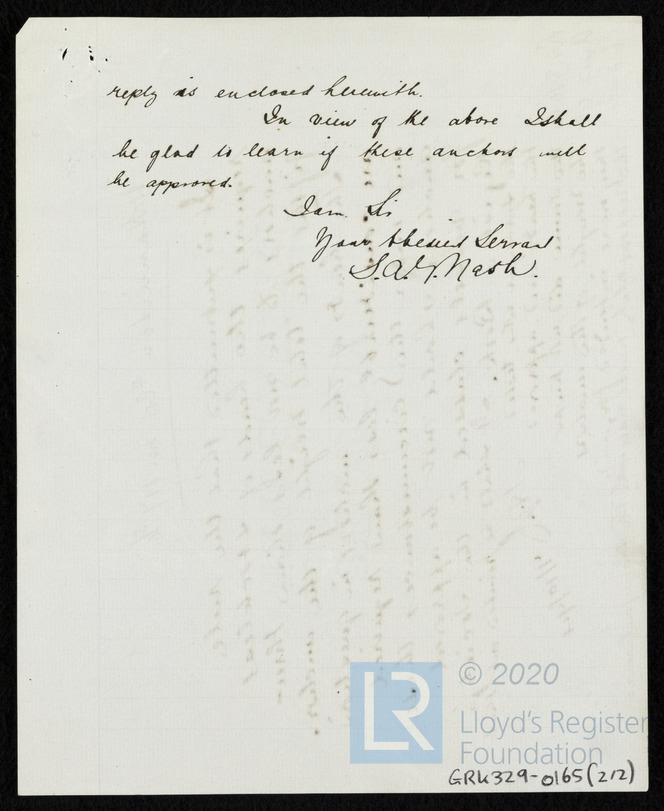 reply is enclosed herewith.
In view of the above I shall
be glad to learn if these anchors will
be approved.
I am Sir
Your Obedient Servant
S.A.J. Nash.
© 2020
LR
Lloyd's Register
Foundation
GRK329-0165(2/2)